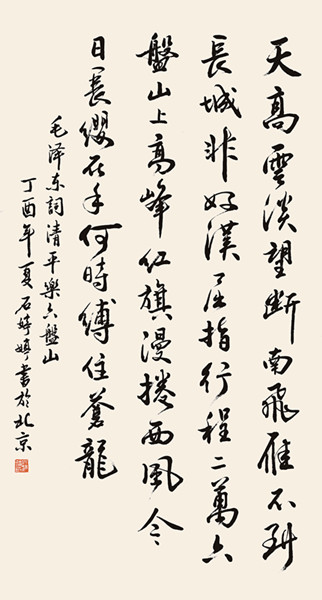 天高雲淡望断南飛雁不到
長城非好漢屈指行程二萬六
盤山上高峰红旗漫捲西風今
日長纓在手何時縛住蒼龍
毛泽东詞清平樂六盤山
丁酉年夏石婷書於北京